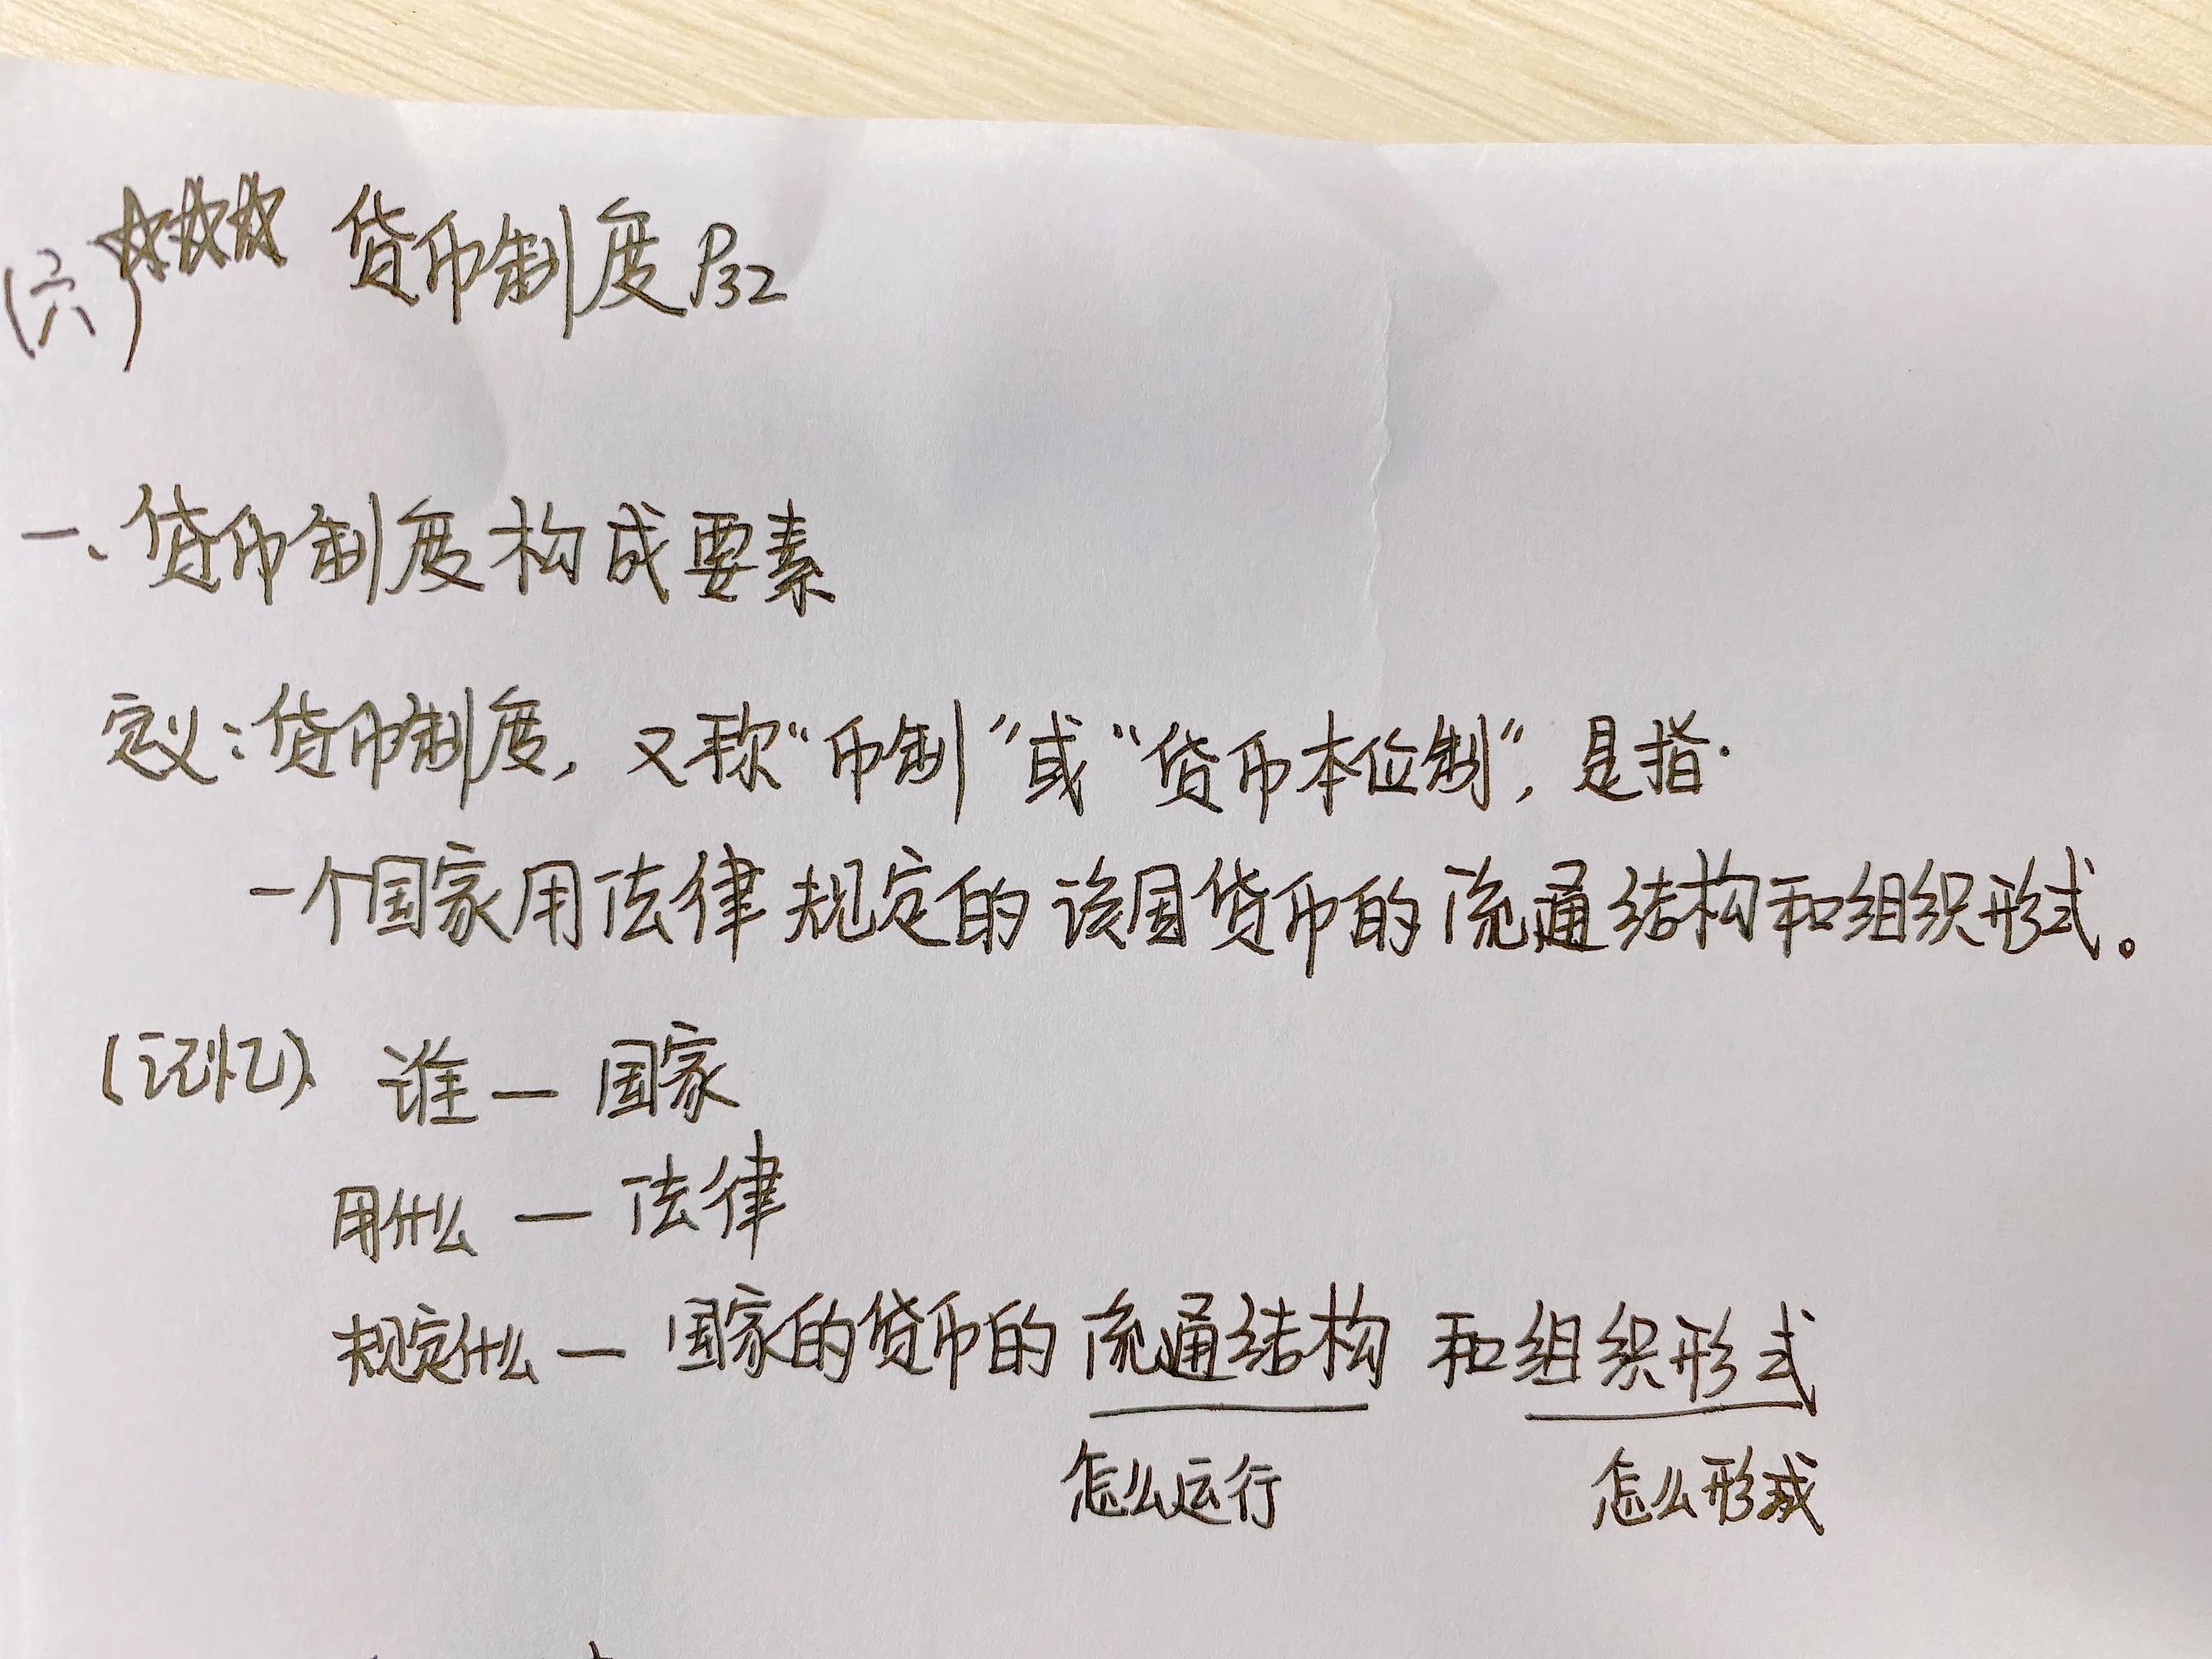 (六)☆☆☆ 货币制度 P32
一、货币制度构成要素
定义:货币制度,又称“币制”或“货币本位制”,是指
一个国家用法律规定的该国货币的流通结构和组织形式。
(记忆) 谁 — 国家
用什么 — 法律
规定什么 — 国家的货币的流通结构 和组织形式
怎么运行 怎么形成